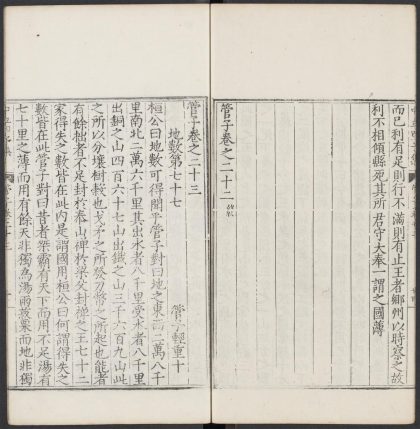 而已利有足則行不滿則有止王者鄉州以時察之故
利不相傾縣死其所君守大奉一謂之國薄
管子卷之二十二
管子卷之二十三
管子輕重十
地數第七十七
桓公曰地數可得聞乎管子對曰地之東西二萬八千
里南北二萬六千里其出水者八千里受水者八千里
出銅之山四百六十七山出鐵之山三千六百九山此
之所以分壤樹穀也戈矛之所發刀幣之所起也能者
有餘拙者不足封於泰山禪於梁父封禪之王七十二
家得失之數皆在此內是謂國用桓公曰何謂得失之
數皆在此管子對曰昔者桀霸有天下而用不足湯有
七十里之薄而用有餘天非獨為湯雨菽粟而地非獨